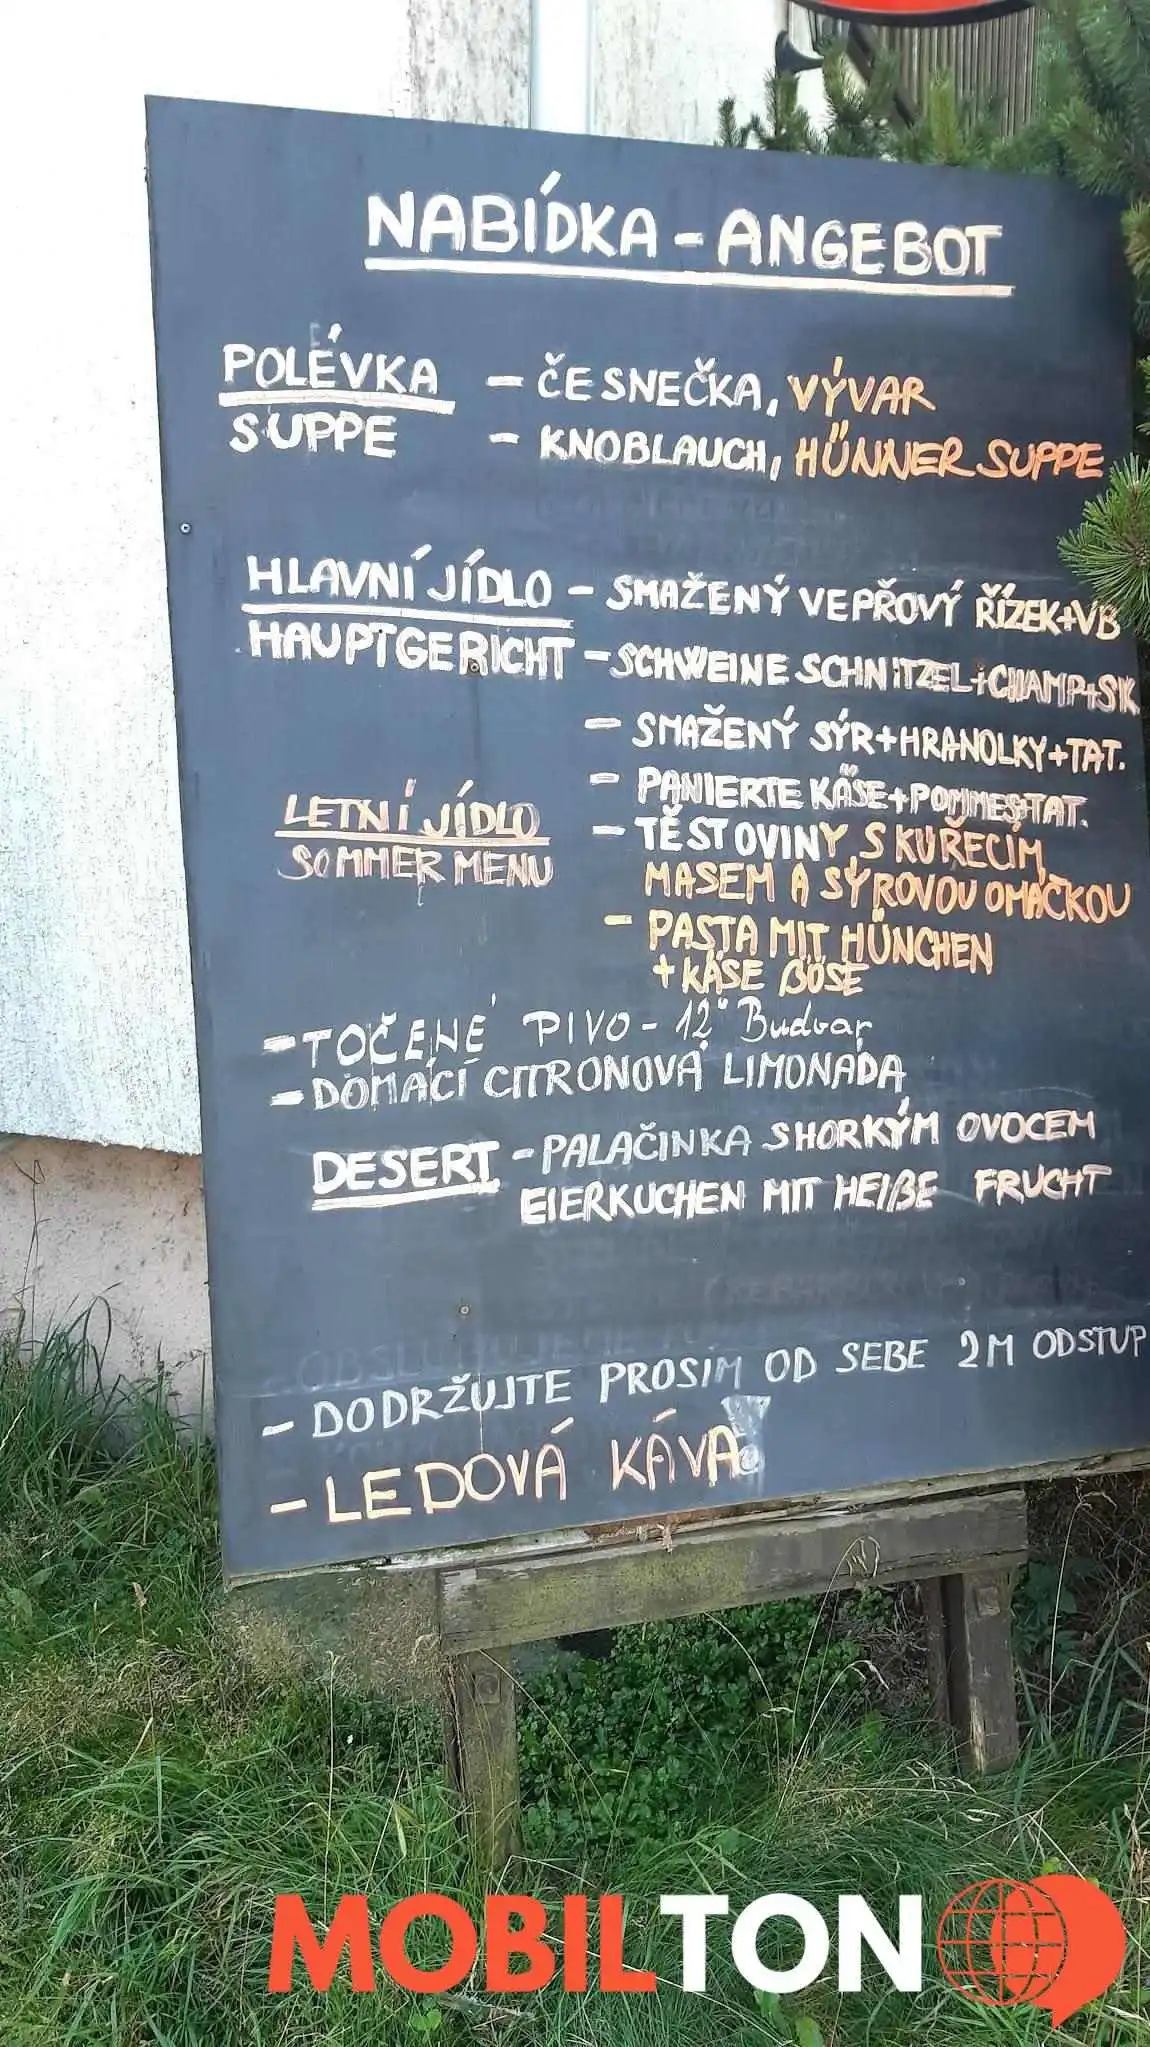 NABÍDKA - ANGEBOT
POLÉVKA - ČESNEČKA, VÝVAR
SUPPE - KNOBLAUCH, HÜNNER SUPPE
HLAVNÍ JÍDLO - SMAŽENÝ VEPŘOVÝ ŘÍZEK+VB
HAUPTGERICHT - SCHWEINE SCHNITZEL+CHAMP+SK.
- SMAŽENÝ SÝR+HRANOLKY+TAT.
- PANIERTE KÄSE+POMMES+TAT.
LETNÍ JÍDLO - TĚSTOVINY S KUŘECÍM
SOMMER MENU MASEM A SÝROVOU OMÁČKOU
- PASTA MIT HÜNCHEN
+ KÄSE BÖSE
- TOČENÉ PIVO - 12° Budvar
- DOMÁCÍ CITRONOVÁ LIMONÁDA
DESERT - PALAČINKA SHORKÝM OVOCEM
EIERKUCHEN MIT HEIßE FRUCHT
- DODRŽUJTE PROSIM OD SEBE 2M ODSTUP
- LEDOVÁ KÁVA
MOBILTON